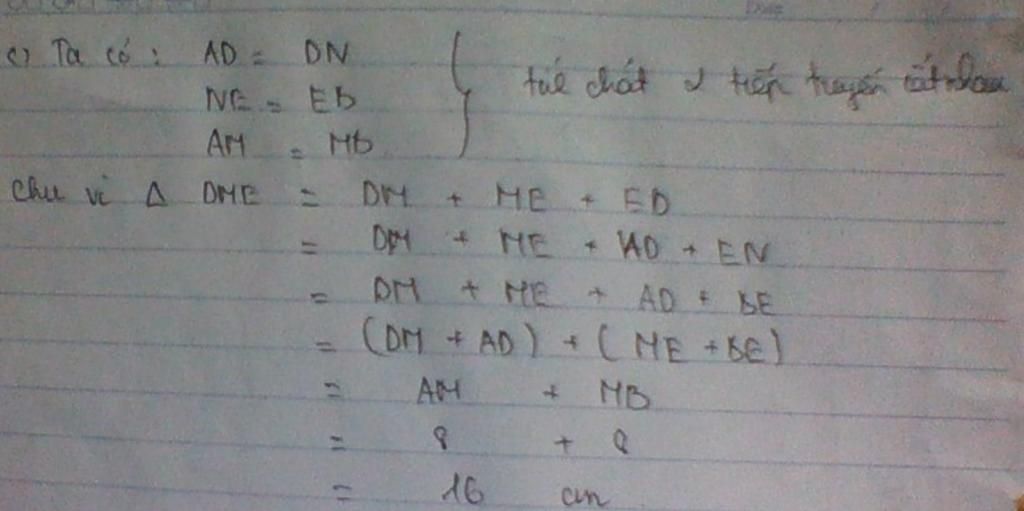 c) Ta có : AD = DN
NE = EB
AM = MB
} tuế chát 2 tiếp tuyến cắt nhau
Chu vi Δ DME = DM + ME + ED
= DM + ME + ND + EN
= DM + ME + AD + BE
= (DM + AD) + (ME + BE)
= AM + MB
= 8 + 8
= 16 cm